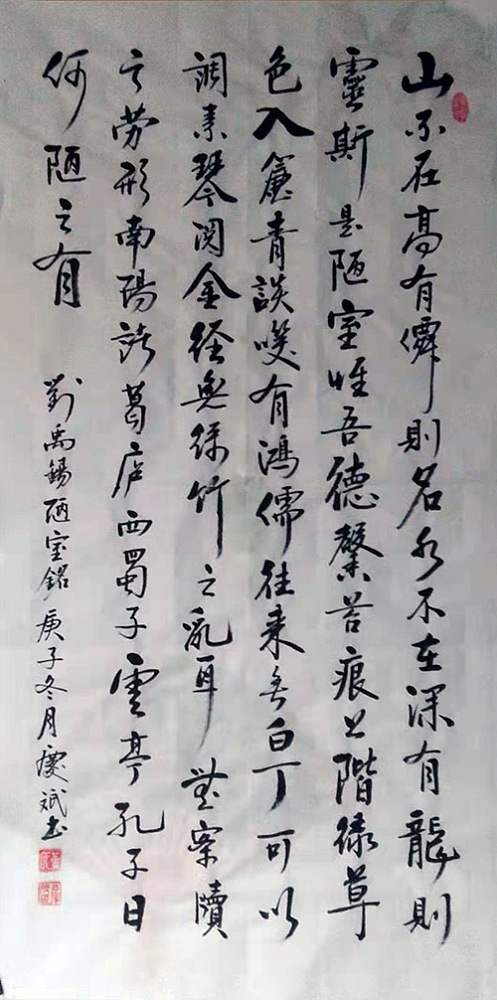 山不在高有僊則名水不在深有龍則
靈斯是陋室惟吾德馨苔痕上階緑草
色入簾青談咲有鴻儒往来無白丁可以
調素琴閱金経無絲竹之亂耳無案牘
之劳形南陽諸葛庐西蜀子雲亭孔子曰
何陋之有
劉禹錫陋室銘庚子冬月慶斌书